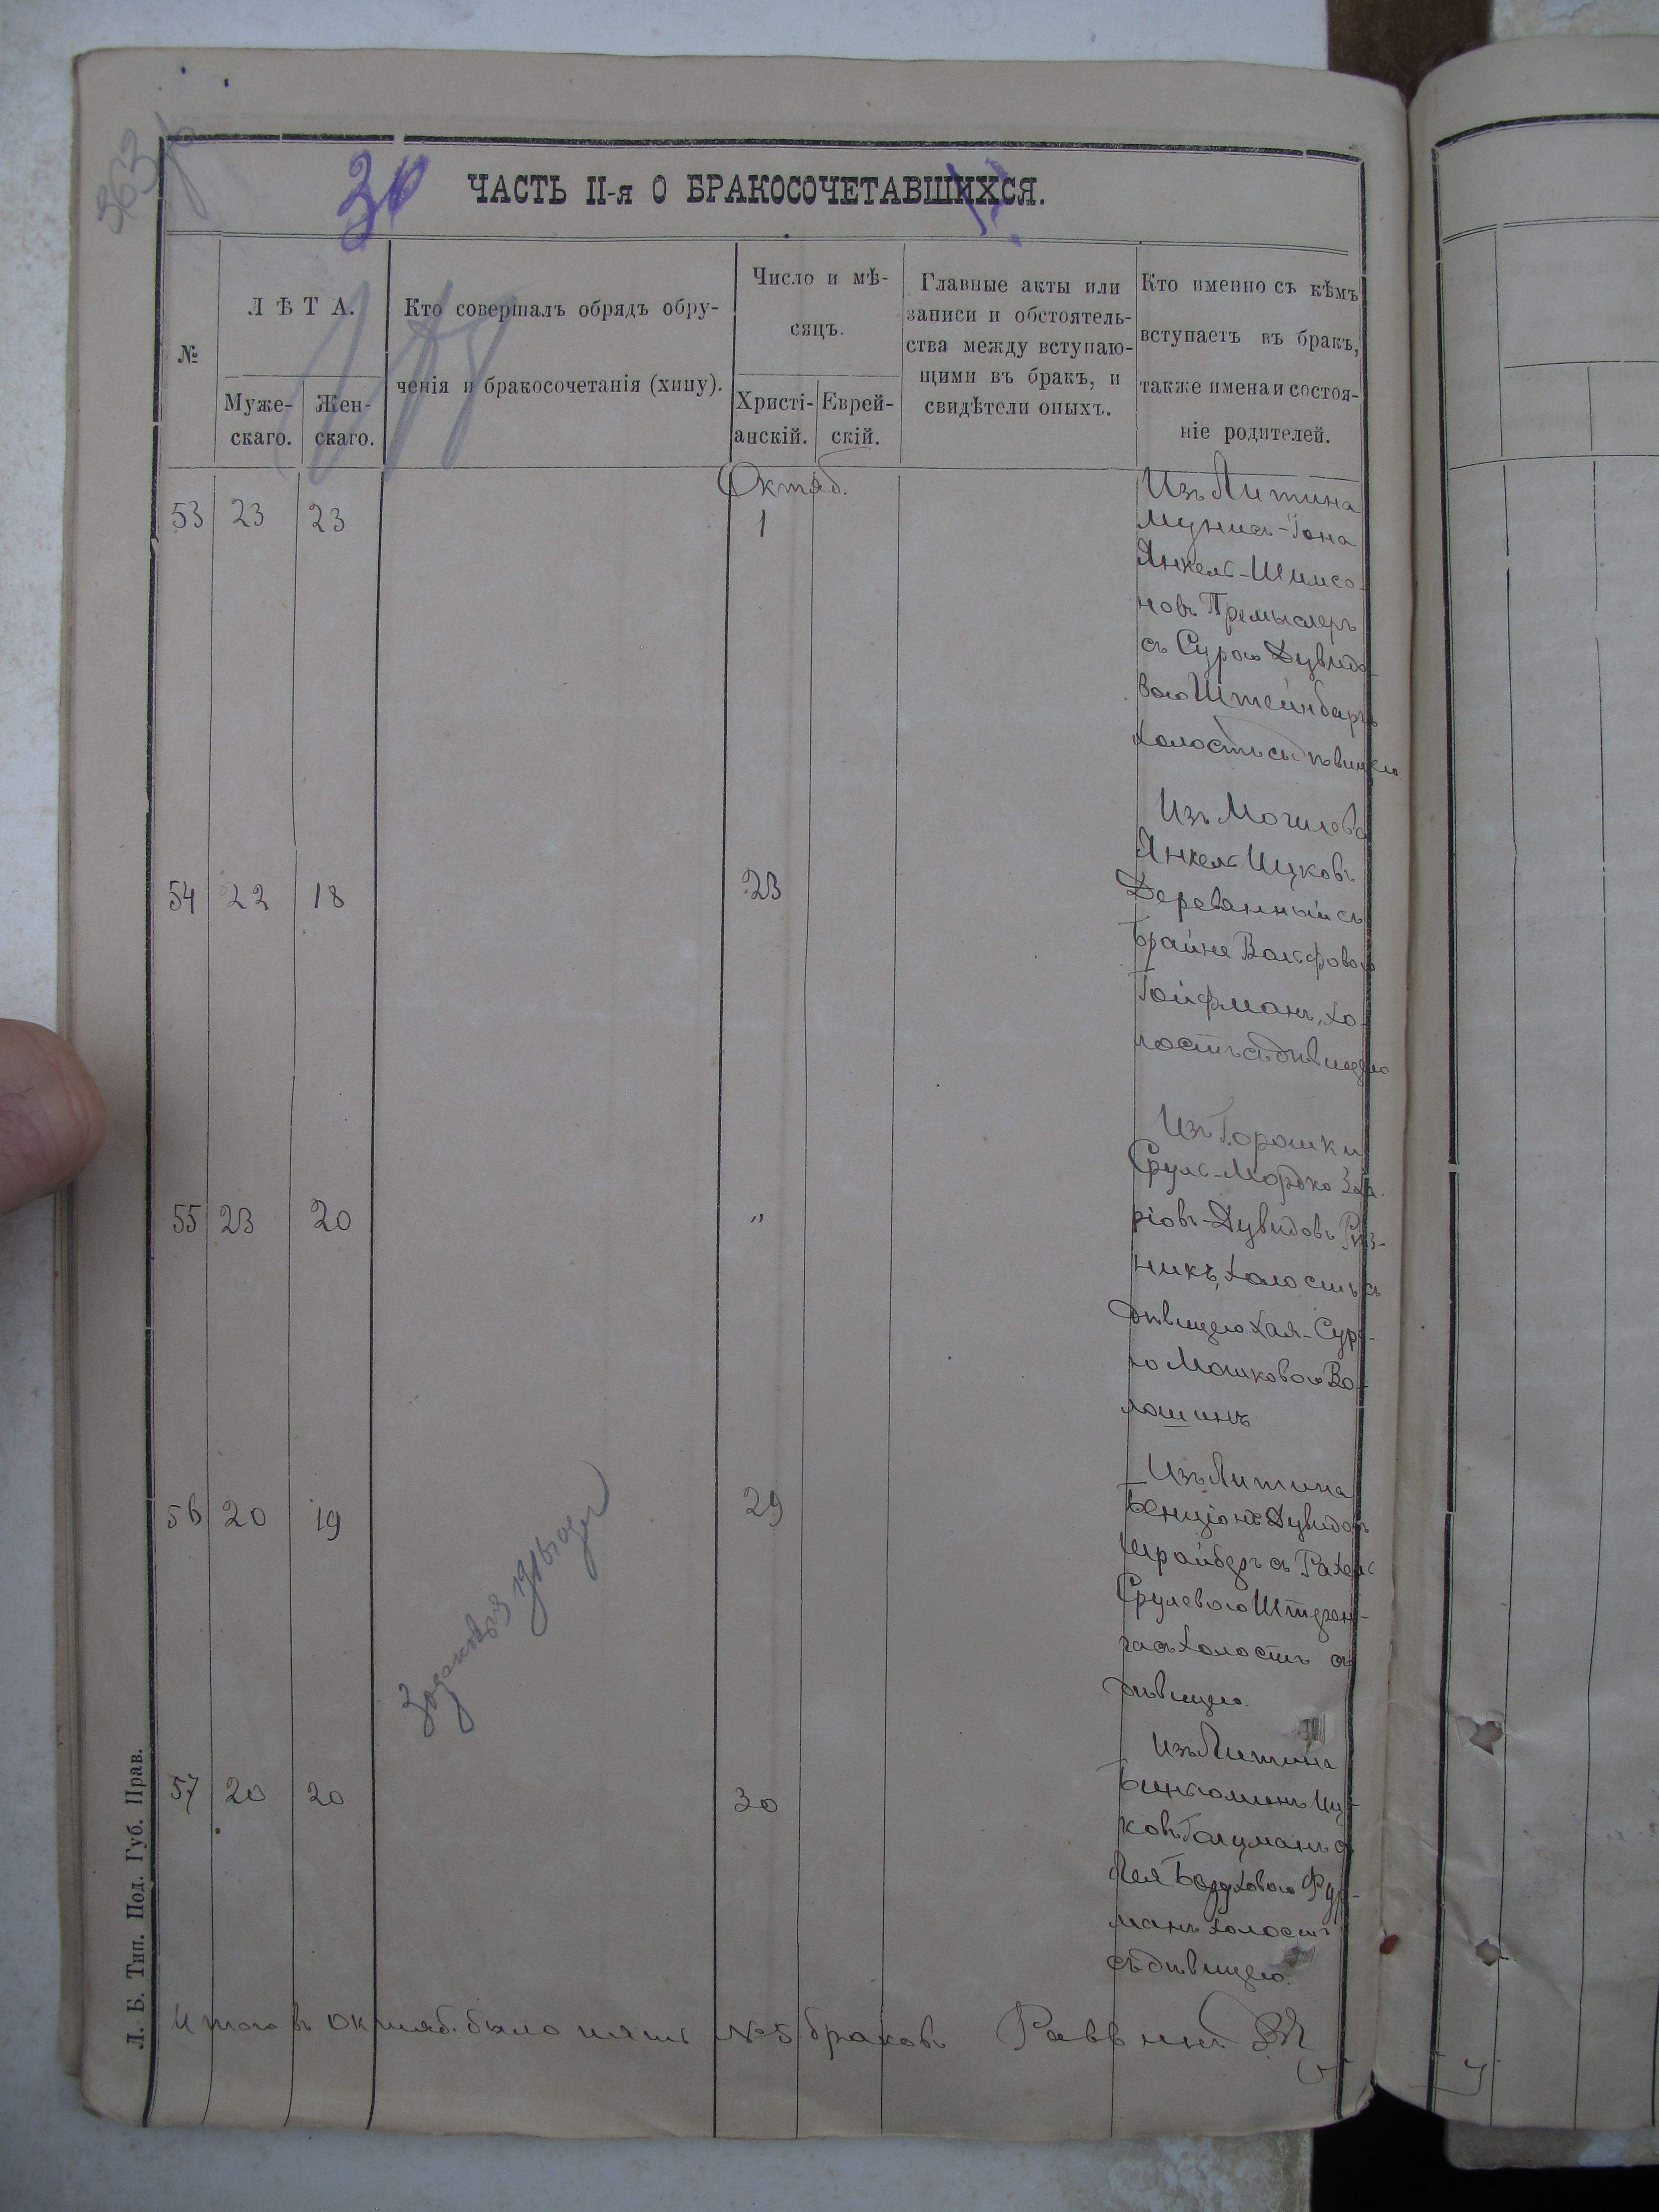 30
ЧАСТЬ II-я О БРАКОСОЧЕТАВШИХСЯ.
№
ЛѢТА.
Муже-
скаго.
Жен-
скаго.
Кто совершалъ обрядъ обру-
ченія и бракосочетанія (хипу).
Число и мѣ-
сяцъ.
Христі-
анскій.
Еврей-
скій.
Главные акты или
записи и обстоятель-
ства между вступаю-
щими въ бракъ, и
свидѣтели оныхъ.
Кто именно съ кѣмъ
вступаетъ въ бракъ,
также имена и состоя-
ніе родителей.
Октяб.
53 23 23 1
Изъ Литина
Мунишъ-Іона
Янкель-Шимсо-
новъ Премыслеръ
съ Сурою Дувидо-
вою Штейнбаргъ
холостъ съ дѣвицею
54 22 18 23
Изъ Могилева
Янкель Ицковъ
Деревянный съ
Брайне Вольфовою
Гойфманъ, хо-
лостъ съ дѣвицею
55 23 20 "
Изъ Горошки
Сруль-Мордко
ріовъ-Дувидовъ Рѣз-
никъ, холостъ съ
дѣвицею Хая-Сур-
ю Мошковою Во-
лошинъ
56 20 19 29
Изъ Литина
Бенціонъ Дувидовъ
Шрайберъ съ Рахель
Срулевою Штерен-
гасъ холостъ съ
дѣвицею.
57 20 20 30
Изъ Литина
Биньоминъ Иц-
ковъ Гольцманъ съ
Лея Боруховою Фур-
манъ холостъ
съ дѣвицею.
Итого въ октяб. было пять №5 браковъ Раввинъ
Л. Б. Тип. Под. Губ. Прав.